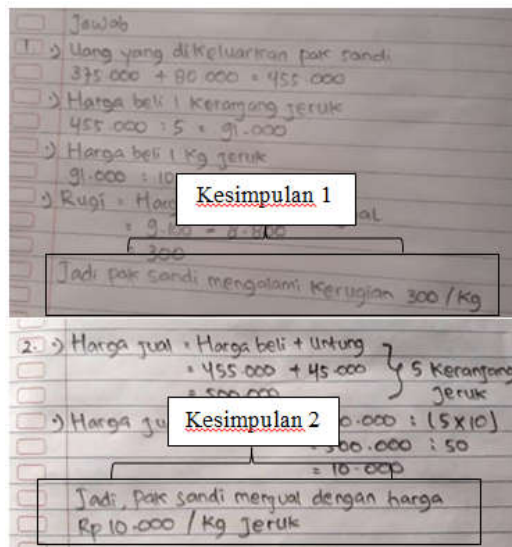 Jawab
1 •) Uang yang dikeluarkan pak sandi
375.000 + 80.000 = 455.000
•) Harga beli 1 keranjang jeruk
455.000 : 5 = 91.000
•) Harga beli 1 kg jeruk
91.000 : 10
Kesimpulan 1
•) Rugi =
= 9.100 - 8.800
= 300
Jadi pak sandi mengalami kerugian 300 / kg
2. •) Harga jual = Harga beli + Untung
= 455.000 + 45.000 } 5 keranjang
= 500.000 jeruk
•) Harga 0.000 : (5x10)
Kesimpulan 2
= 500.000 : 50
= 10.000
Jadi, pak sandi menjual dengan harga
Rp 10.000 / kg jeruk